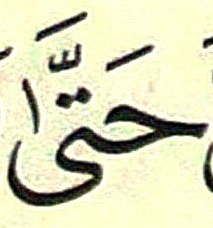 حَتَّىٰ